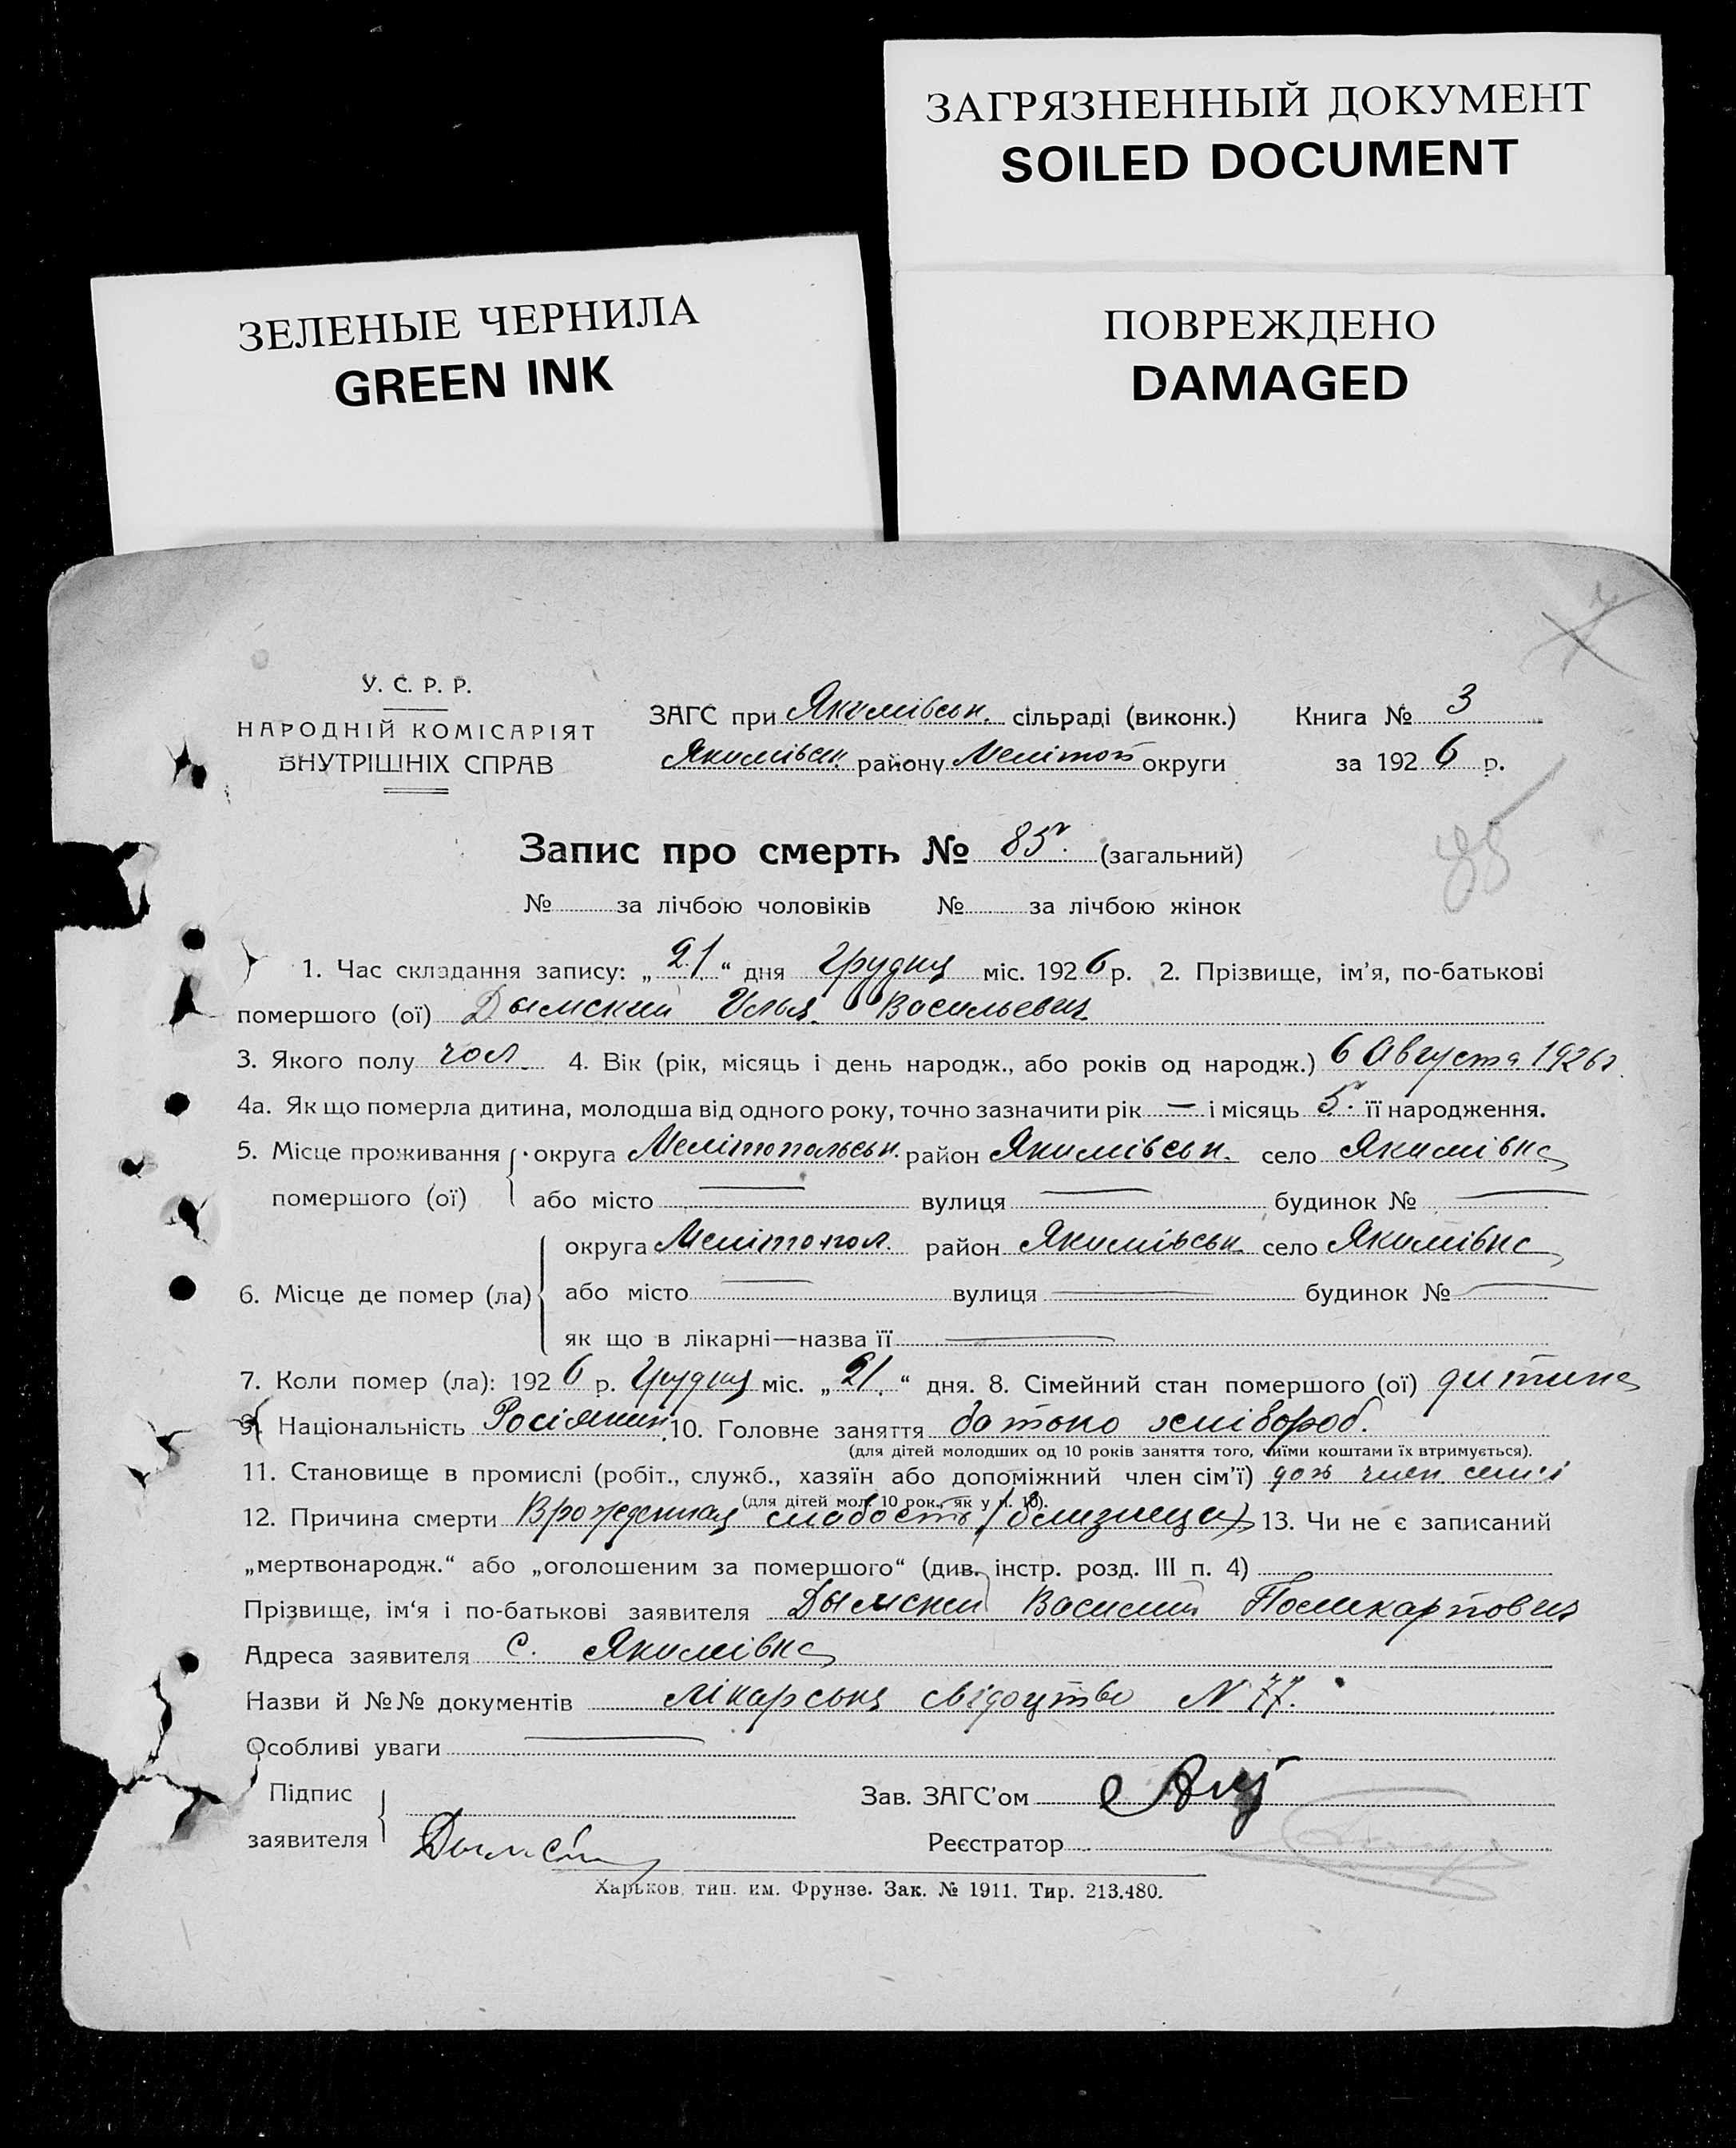 ЗАГРЯЗНЕННЫЙ ДОКУМЕНТ
SOILED DOCUMENT
ЗЕЛЕНЫЕ ЧЕРНИЛА
GREEN INK
ПОВРЕЖДЕНО
DAMAGED
У. С. Р. Р.
НАРОДНІЙ КОМІСАРІЯТ
ВНУТРІШНІХ СПРАВ
ЗАГС при Якимівськ. сільраді (виконк.) Книга № 3
Якимівськ. району Мелітоп округи за 1926 р.
85
Запис про смерть № 85. (загальний)
№ за лічбою чоловіків № за лічбою жінок
1. Час складання запису: „21“ дня Грудня міс. 1926 р. 2. Прізвище, ім’я, по-батькові
помершого (ої) Дымский Илья Васильевич
3. Якого полу чол. 4. Вік (рік, місяць і день народж., або років од народж.) 6 Августа 1926 г.
4а. Як що померла дитина, молодша від одного року, точно зазначити рік — і місяць 5. її народження.
5. Місце проживання округа Мелітопольськ. район Якимівськ. село Якимівка
помершого (ої) або місто — вулиця — будинок № —
округа Мелітопол. район Якимівськ. село Якимівка
6. Місце де помер (ла) або місто — вулиця — будинок № —
як що в лікарні—назва її —
7. Коли помер (ла): 1926 р. Грудня міс. „21.“ дня. 8. Сімейний стан помершого (ої) дитина
9. Національність Росіянин 10. Головне заняття батько хлібороб.
(для дітей молодших од 10 років заняття того, чиїми коштами їх втримується).
11. Становище в промислі (робіт., служб., хазяїн або допоміжний член сім’ї) доп член семьї
(для дітей мол. 10 рок., як у п. 10).
12. Причина смерти Врожденная слабость (близнеца) 13. Чи не є записаний
„мертвонародж.“ або „оголошеним за помершого“ (див. інстр. розд. III п. 4)
Прізвище, ім‘я і по-батькові заявителя Дымский Василий Поликарпович
Адреса заявителя с. Якимівка
Назви й №№ документів лікарське свідоцтво N 77.
Особливі уваги —
Підпис
заявителя Дымс
Зав. ЗАГС’ом
Реєстратор
Харьков, тип. им. Фрунзе. Зак. № 1911. Тир. 213.480.